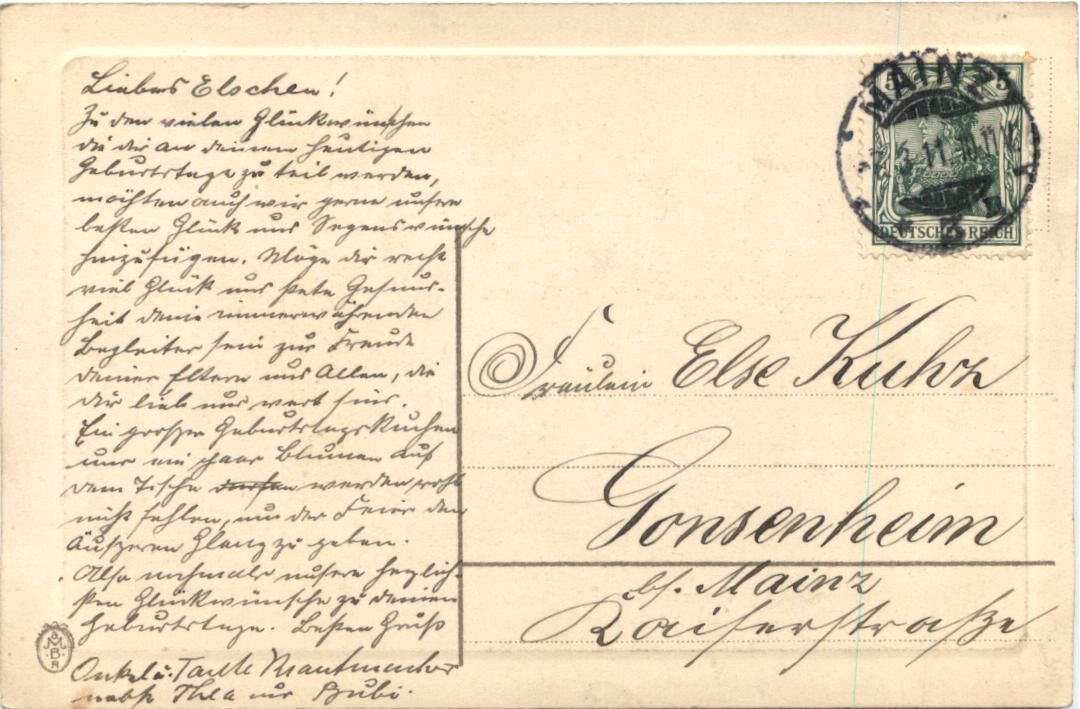 Liebes Elschen!
Zu den vielen Glückwünschen
die dir an deinem heutigen
Geburtstage zu teil werden,
möchten auch wir gerne unsere
besten Glück und Segenswünsche
hinzufügen. Möge dir recht
viel Glück und stete Gesund-
heit dein immerwährenden
Begleiter sein zur Freude
deiner Eltern und Allen, die
dir lieb und wert sind.
Ein grosser Geburtstagskuchen
und ein paar Blumen auf
dem Tische dürfen werden wohl
nicht fehlen, um der Feier den
äußeren Glanz zu geben.
Also nochmals unsere herzlich-
sten Glückwünsche zu deinem
Geburtstage. Besten Gruß
Onkel u. Tante
nebst Thea und Bubi.
MAINZ
3.11.
5 5
DEUTSCHES REICH
Fräulein Else Kuhn
Gonsenheim
bei Mainz
Kaiserstraße
M B
R